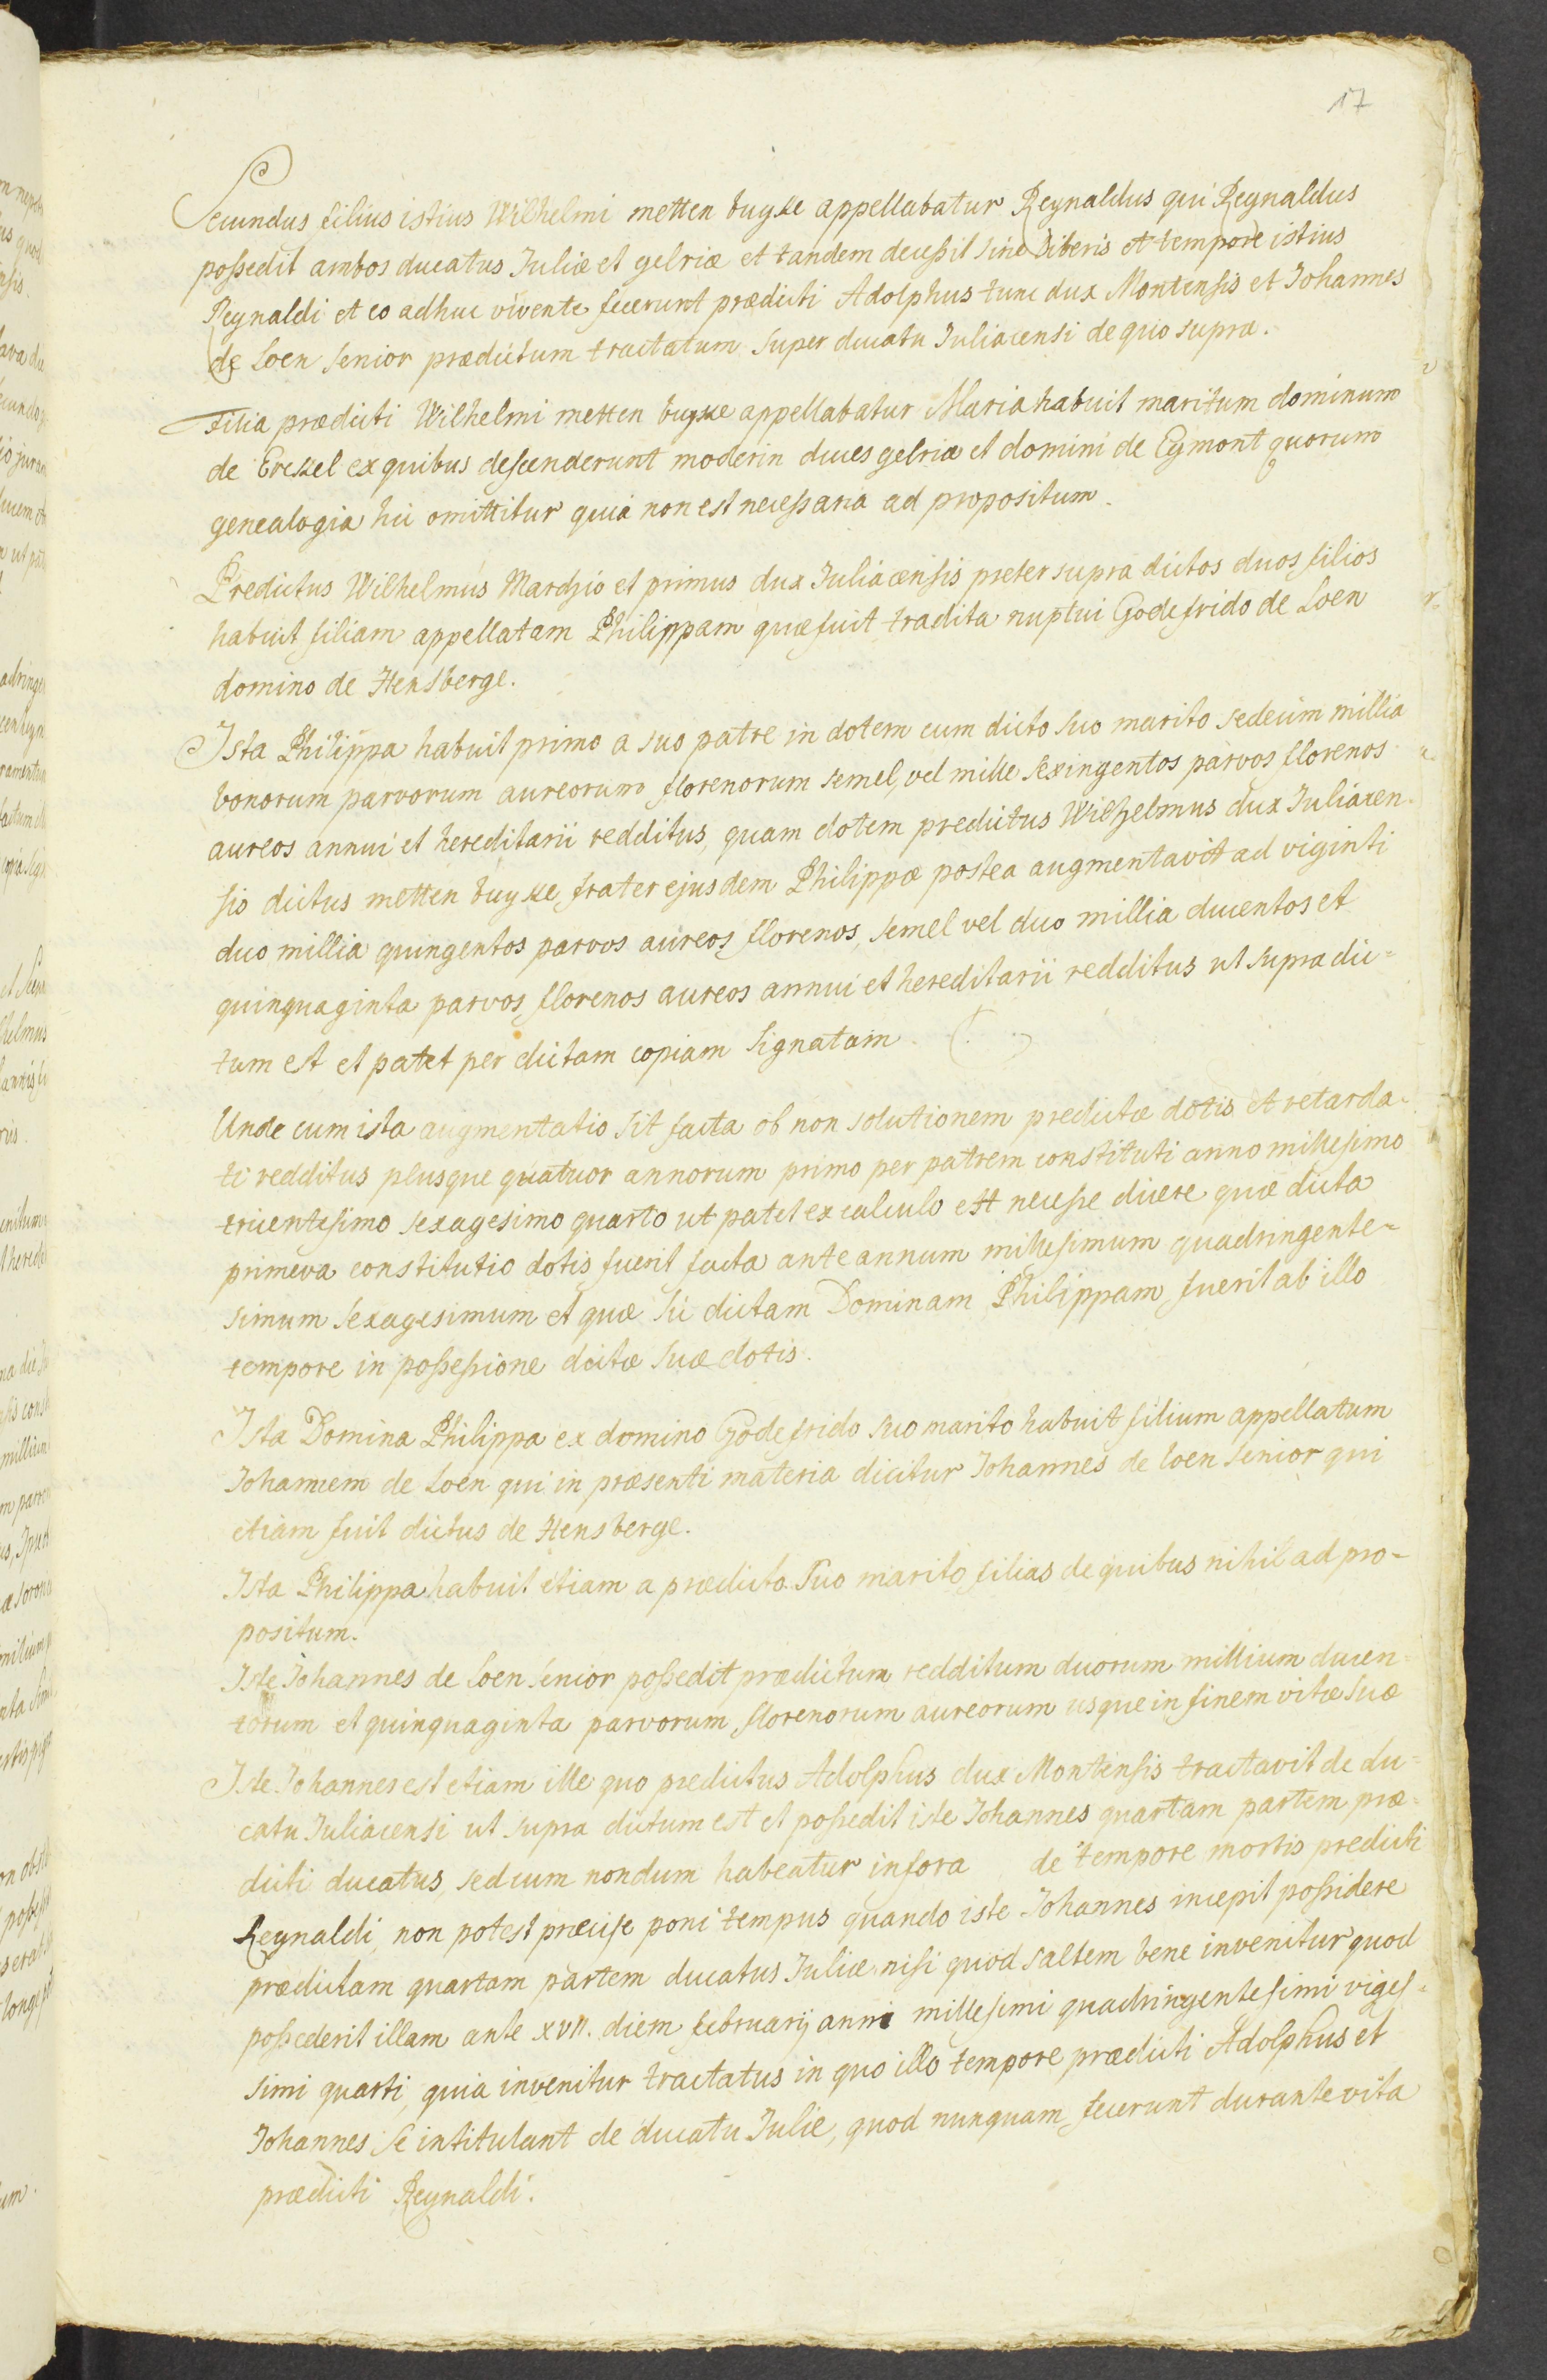 17
Secundus filius istius Wilhelmi metten buyke appellabatur Reynaldus qui Reynaldus
possedit ambos ducatus Juliæ et gelriæ et tandem decessit sine liberis et tempore istius
Reynaldi et eo adhuc vivente fecerunt prædicti Adolphus tunc dux Montensis et Johannes
de Loen senior prædictum tractatum super ducatu Juliacensi de quo supra.
Filia prædicti Wilhelmi metten buyke appellabatur Maria habuit maritum dominum
de Erckel ex quibus descenderunt moderin duces gelriæ et domini de Egmont quorum
genealogia hic omittitur quia non est necessaria ad propositum.
Predictus Wilhelmus Marchio et primus dux Juliacensis preter supra dictos duos filios
habuit filiam appellatam Philippam quæ fuit tradita nuptui Godefrido de Loen
domino de Hensberge.
Ista Philippa habuit primo a suo patre in dotem cum dicto suo marito sedecim millia
bonorum parvorum aureorum florenorum semel, vel mille sexingentos parvos florenos
aureos annui et hereditarii redditus, quam dotem predictus Wilhelmus dux Juliacen-
sis dictus metten buyke frater ejusdem Philippæ postea augmentavit ad viginti
duo millia quingentos parvos aureos florenos, semel vel duo millia ducentos et
quinquaginta parvos florenos aureos annui et hereditarii redditus ut supra dic=
tum est et patet per dictam copiam signatam. (. .)
Unde cum ista augmentatio sit facta ob non solutionem predictæ dotis et retarda-
ti redditus plusque quatuor annorum primo per patrem constituti anno millesimo
tricentesimo sexagesimo quarto ut patet ex calculo est necesse dicere quæ dicta
primeva constitutio dotis fuerit facta ante annum millesimum quadringente=
simum sexagesimum et quæ sic dictam Dominam Philippam fuerit ab illo
tempore in possessione dictæ suæ dotis.
Ista Domina Philippa ex domino Godefrido suo marito habuit filium appellatum
Johannem de Loen qui in præsenti materia dicitur Johannes de loen senior qui
etiam fuit dictus de Hensberge.
Ista Philippa habuit etiam a prædicto suo marito filias de quibus nihil ad pro-
positum.
Iste Johannes de Loen senior possedit prædictum redditum duorum millium ducen=
torum et quinquaginta parvorum florenorum aureorum usque in finem vitæ suæ
Iste Johannes est etiam ille quo predictus Adolphus dux Montensis tractavit de du=
catu Juliacensi ut supra dictum est et possedit iste Johannes quartam partem præ=
dicti ducatus, sed cum nondum habeatur infora de tempore mortis predicti
Reynaldi, non potest præcise poni tempus quando iste Johannes incepit possidere
prædictam quartam partem ducatus Juliæ nisi quod saltem bene invenitur quod
possederit illam ante xvii. diem februarij anni millesimi quadringentesimi viges=
simi quarti, quia invenitur tractatus in quo illo tempore prædicti Adolphus et
Johannes se intitulant de ducatu Julie, quod nunquam fecerunt durante vita
prædicti Reynaldi.